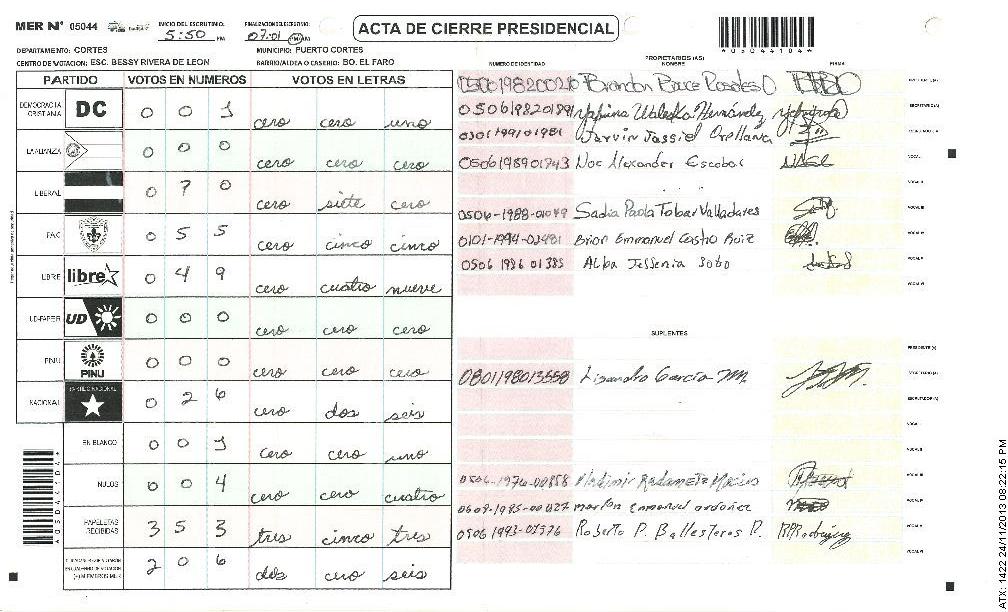 MER Nº 05044 INICIO DEL ESCRUTINIO: 5:50 PM FINALIZACION DEL ESCRUTINIO: 07:01 PM/AM ACTA DE CIERRE PRESIDENCIAL
DEPARTAMENTO: CORTES MUNICIPIO: PUERTO CORTES
CENTRO DE VOTACION: ESC. BESSY RIVERA DE LEON BARRIO/ALDEA O CASERIO: BO. EL FARO
PARTIDO VOTOS EN NUMEROS VOTOS EN LETRAS
DEMOCRACIA CRISTIANA DC 0 0 1 cero cero uno
LA ALIANZA 0 0 0 cero cero cero
LIBERAL 0 7 0 cero siete cero
PAC 0 5 5 cero cinco cinco
LIBRE libre 0 4 9 cero cuatro nueve
UD-FAPER UD 0 0 0 cero cero cero
PINU PINU 0 0 0 cero cero cero
NACIONAL PARTIDO NACIONAL 0 2 6 cero dos seis
EN BLANCO 0 0 1 cero cero uno
NULOS 0 0 4 cero cero cuatro
PAPELETAS RECIBIDAS 3 5 3 tres cinco tres
(+) MIEMBROS MER 2 0 6 dos cero seis
*05044104*
NUMERO DE IDENTIDAD PROPIETARIOS (AS) NOMBRE FIRMA
Brandon Ponce Rosales
0506198201891 Waleska Hernández SECRETARIO(A)
0301199101981 Jarvin Jassiel Orellana
0506198901743 Noe Alexander Escobar VOCAL I
VOCAL II
0506-1988-01049 Sadia Paola Tobar Valladares VOCAL III
0101-1994-02481 Brian Emmanuel Castro Ruiz VOCAL IV
0506 1986 01385 Alba Jessenia Soto VOCAL V
VOCAL VI
SUPLENTES
PRESIDENTE (A)
0801198013558 Lisandro Garcia M. SECRETARIO (A)
ESCRUTADOR (A)
VOCAL I
VOCAL II
0506-1976-00858 Vladimir VOCAL III
0609-1985-00027 marlon enmanuel ordoñez VOCAL IV
0506 1993-01576 Roberto P. Ballesteros R. VOCAL V
VOCAL VI
ATX: 1422 24/11/2013 08:22:15 PM